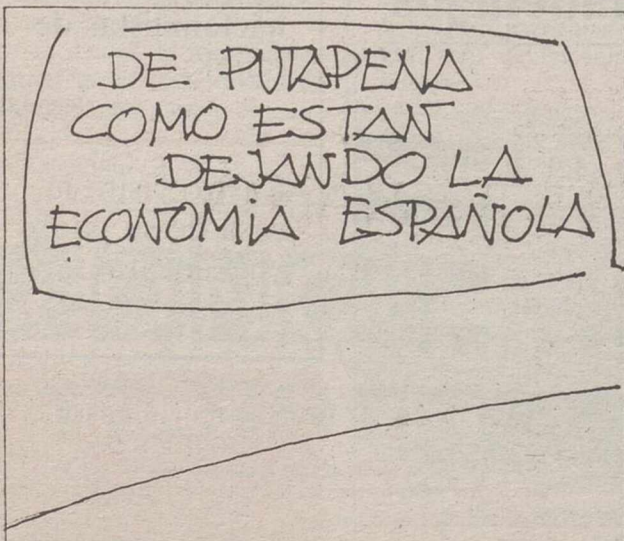 DE PUTAPENA
COMO ESTAN
DEJANDO LA
ECONOMiA ESPAÑOLA